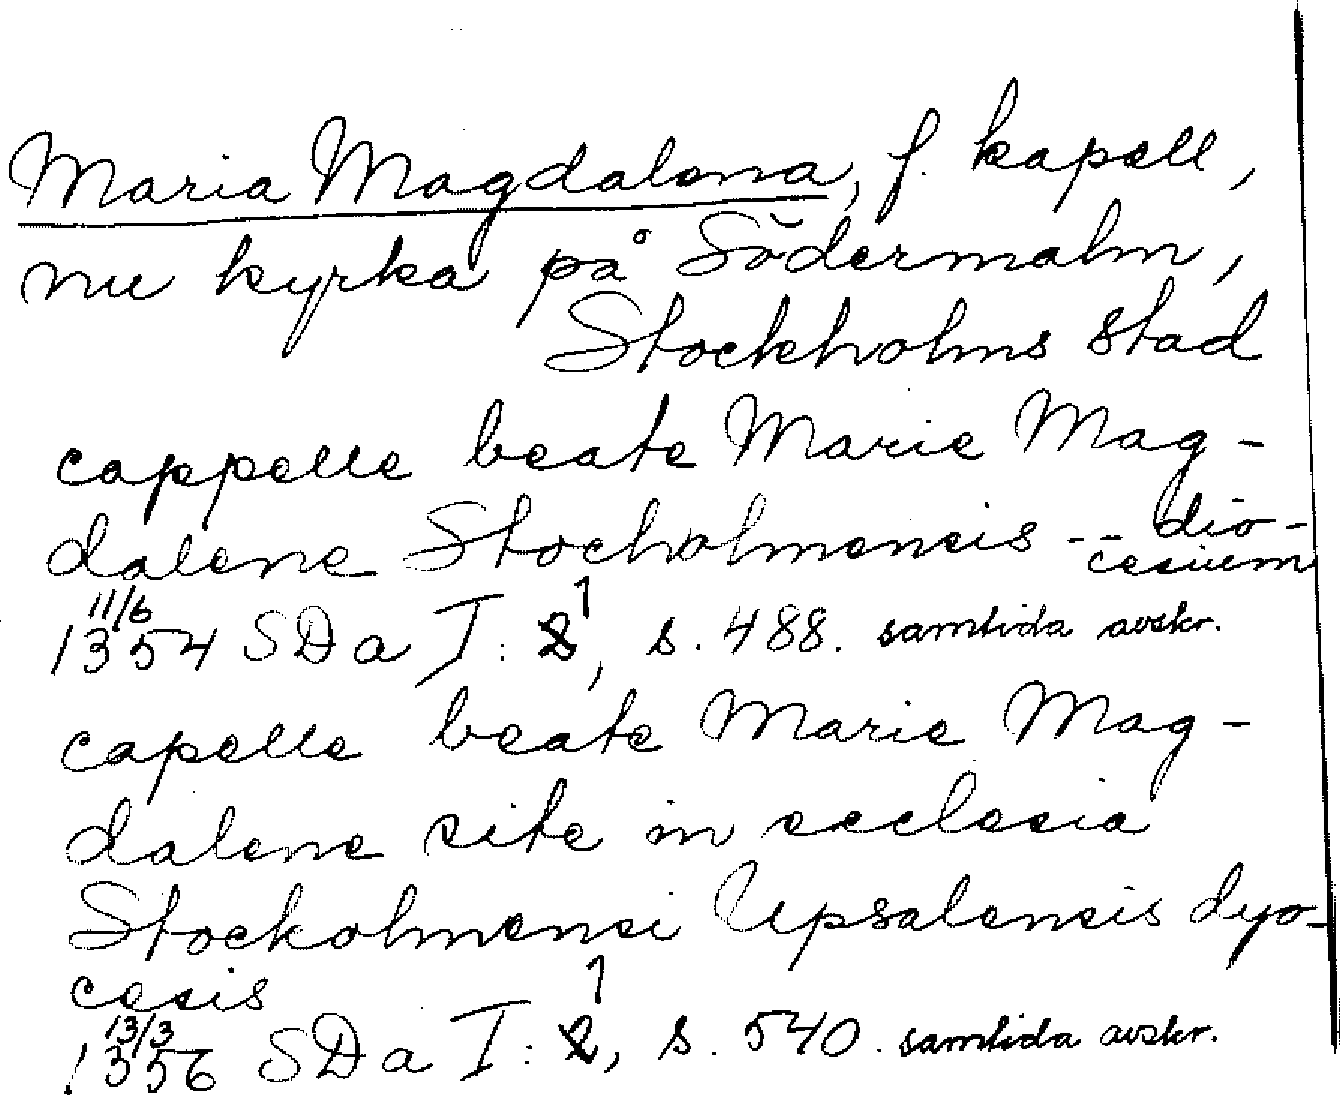 Maria Magdalena, f. kapell,
nu kyrka på Södermalm,
Stockholms stad
cappelle beate Marie Mag-
dalene Stocholmensis -- dio-
cesium
11/6
1354 SDa I: 1, s. 488. samtida avskr.
capelle beate Marie Mag-
dalene site in ecclesia
Stockolmensi Upsalensis dyo-
cesis
13/3
1356 SDa I: 1, s. 540. samtida avskr.